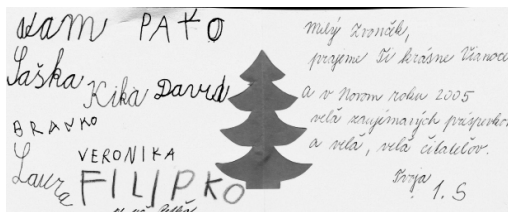 Adam PAŤO
Saška
Kika David
BRANKO
Laura
VERONIKA
FILIPKO
Milý Zvonček,
prajeme Ti krásne Vianoce
a v Novom roku 2005
veľa zaujímavých príspevkov
a veľa, veľa čitateľov.
Tvoja
1. S